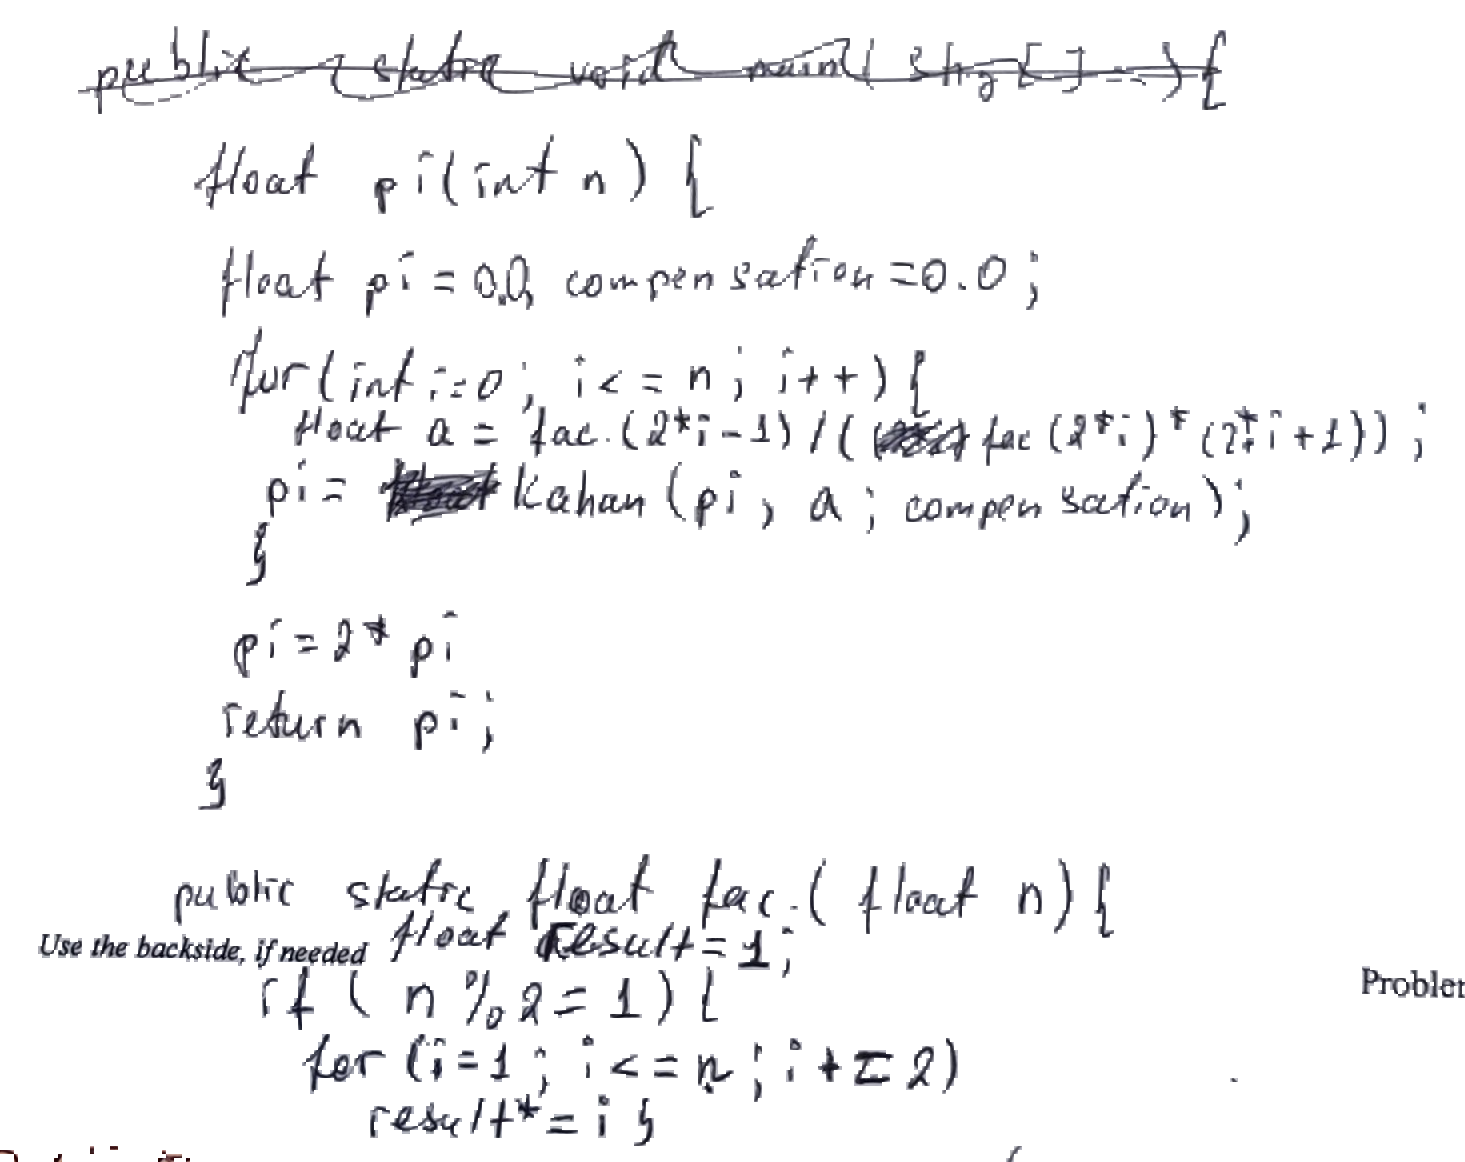 public static void main( Strg[] --){
float pi(int n) {
float pi = 0.0, compensation = 0.0 ;
for (int i=0 ; i <= n ; i++) {
float a = fac.(2*i-1) / ( fac (2*i) * (2*i+1)) ;
pi = Kahan (pi , a ; compensation) ;
}
pi = 2 * pi
return pi ;
}
public static float fac.( float n) {
Use the backside, if needed float result = 1 ;
if ( n % 2 = 1 ) {
Problem
for (i = 1 ; i <= n ; i += 2)
result *= i }